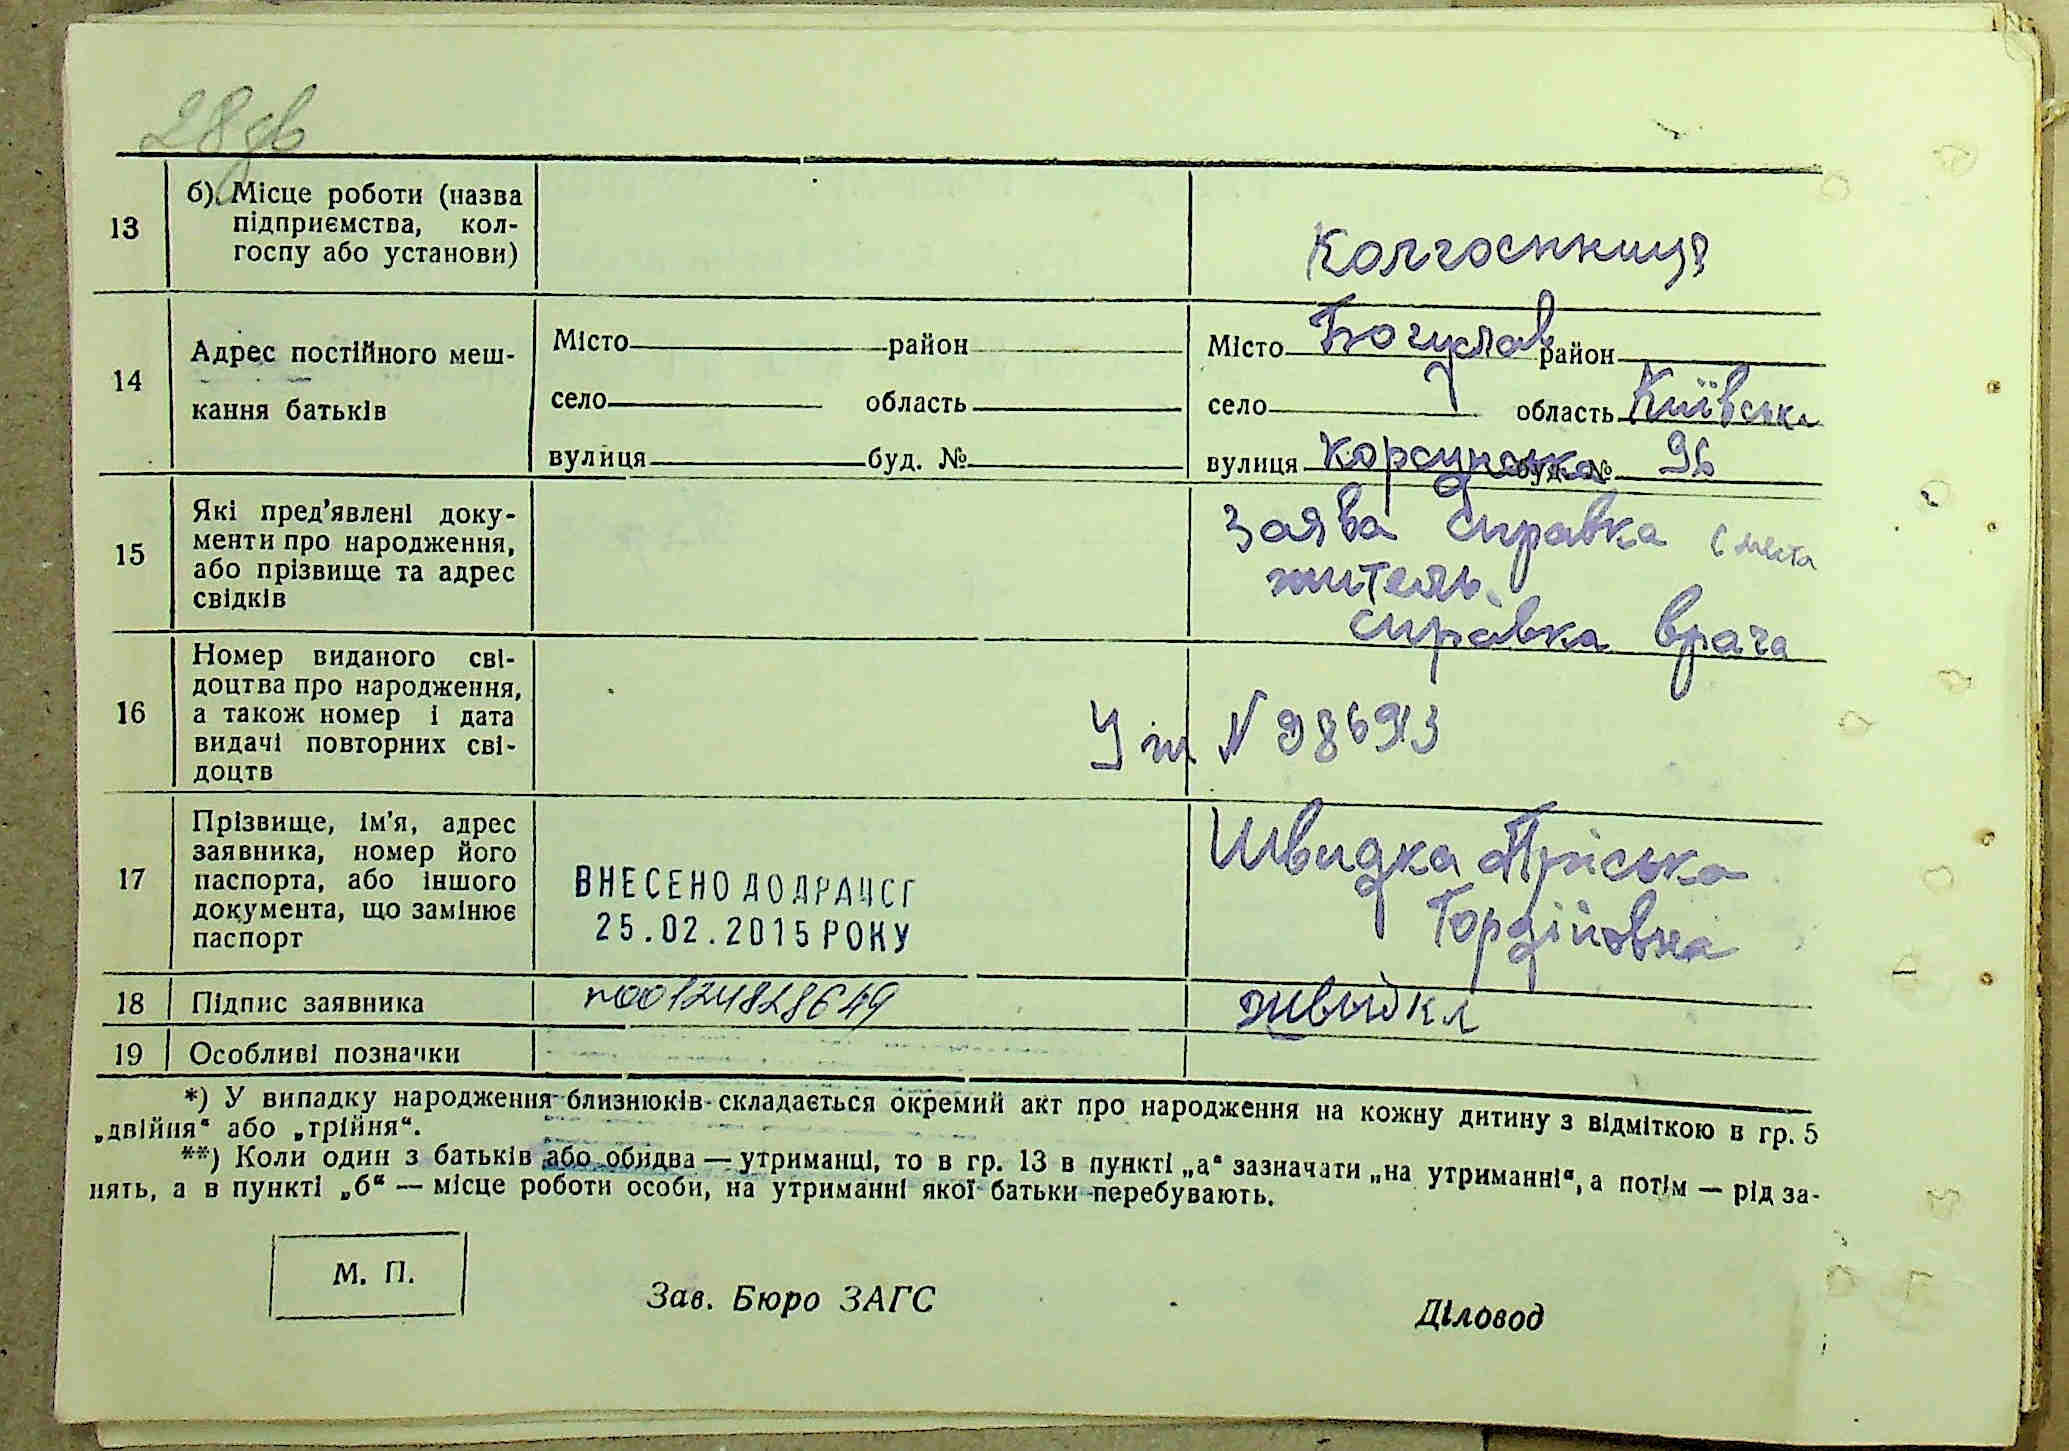 28 зв
13
б) Місце роботи (назва
підприємства, кол-
госпу або установи)
Колгоспниця
14
Адрес постійного меш-
кання батьків
Місто район
село область
вулиця буд. №
Місто Богуслав район
село область Київська
вулиця Корсунська буд. № 96
15
Які пред'явлені доку-
менти про народження,
або прізвище та адрес
свідків
Заява Справка с места
житель.
справка врача
16
Номер виданого сві-
доцтва про народження,
а також номер і дата
видачі повторних сві-
доцтв
N
17
Прізвище, ім'я, адрес
заявника, номер його
паспорта, або іншого
документа, що замінює
паспорт
ВНЕСЕНО ДО ДРАЦСГ
25.02.2015 РОКУ
Швидка Пріська
Гордіївна
18
Підпис заявника
n00124828649
швидка
19
Особливі позначки
*) У випадку народження близнюків складається окремий акт про народження на кожну дитину з відміткою в гр. 5
„двійня“ або „трійня“.
**) Коли один з батьків або обидва — утриманці, то в гр. 13 в пункті „а“ зазначати „на утриманні“, а потім — рід за-
нять, а в пункті „б“ — місце роботи особи, на утриманні якої батьки перебувають.
М. П.
Зав. Бюро ЗАГС
Діловод